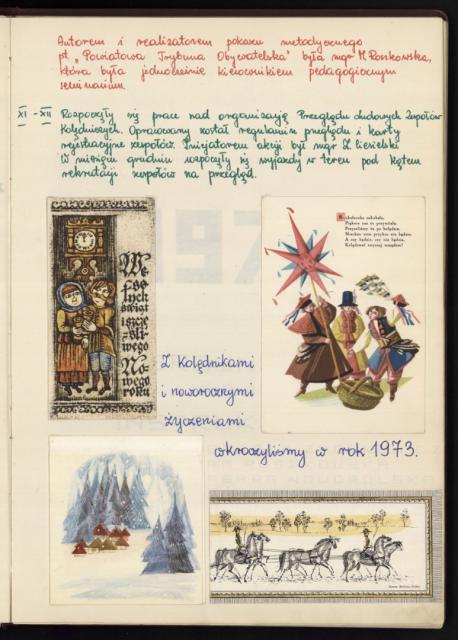 Autorem i realizatorem pokazu metodycznego
pt "Powiatowa Trybuna Obywatelska" była mgr M. Roszkowska,
która była jednocześnie kierownikiem pedagogicznym
seminarium.
XI - XII Rozpoczęły się prace nad organizacją Przeglądu Ludowych Zespołów
Kolędniczych. Opracowany został regulamin przeglądu i karty
rejestracyjne zespołów. Inicjatorem akcji był mgr Z. Ciesielski
W miesiącu grudniu rozpoczęły się wyjazdy w teren pod kątem
rekrutacji zespołów na przegląd.
We-
so-
łych
świąt
i szczę-
śli-
wego
No-
wego
roku
Z Kolędnikami
i noworocznymi
życzeniami
wkroczyliśmy w rok 1973.